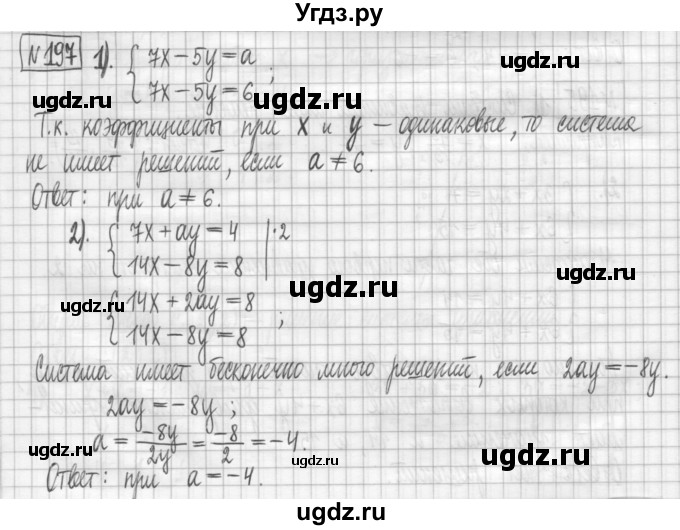 Угдз.ру
№197 1). { 7x − 5y = a
{ 7x − 5y = 6 ;
ugdz.ru ugdz.ru ugdz.ru
Т.к. коэффициенты при x и y – одинаковые, то система
ugdz.ru
не имеет решений, если a ≠ 6.
Ответ: при a ≠ 6.
ugdz.ru ugdz.ru
2). { 7x + ay = 4 |·2
{ 14x − 8y = 8
ugdz.ru
{ 14x + 2ay = 8
ugdz.ru ugdz.ru
{ 14x − 8y = 8 ;
Система имеет бесконечно много решений, если 2ay = −8y.
ugdz.ru
2ay = −8y ;
a = −8y/2y = −8/2 = −4.
ugdz.ru ugdz.ru ugdz.ru
Ответ: при a = −4.
ugdz.ru